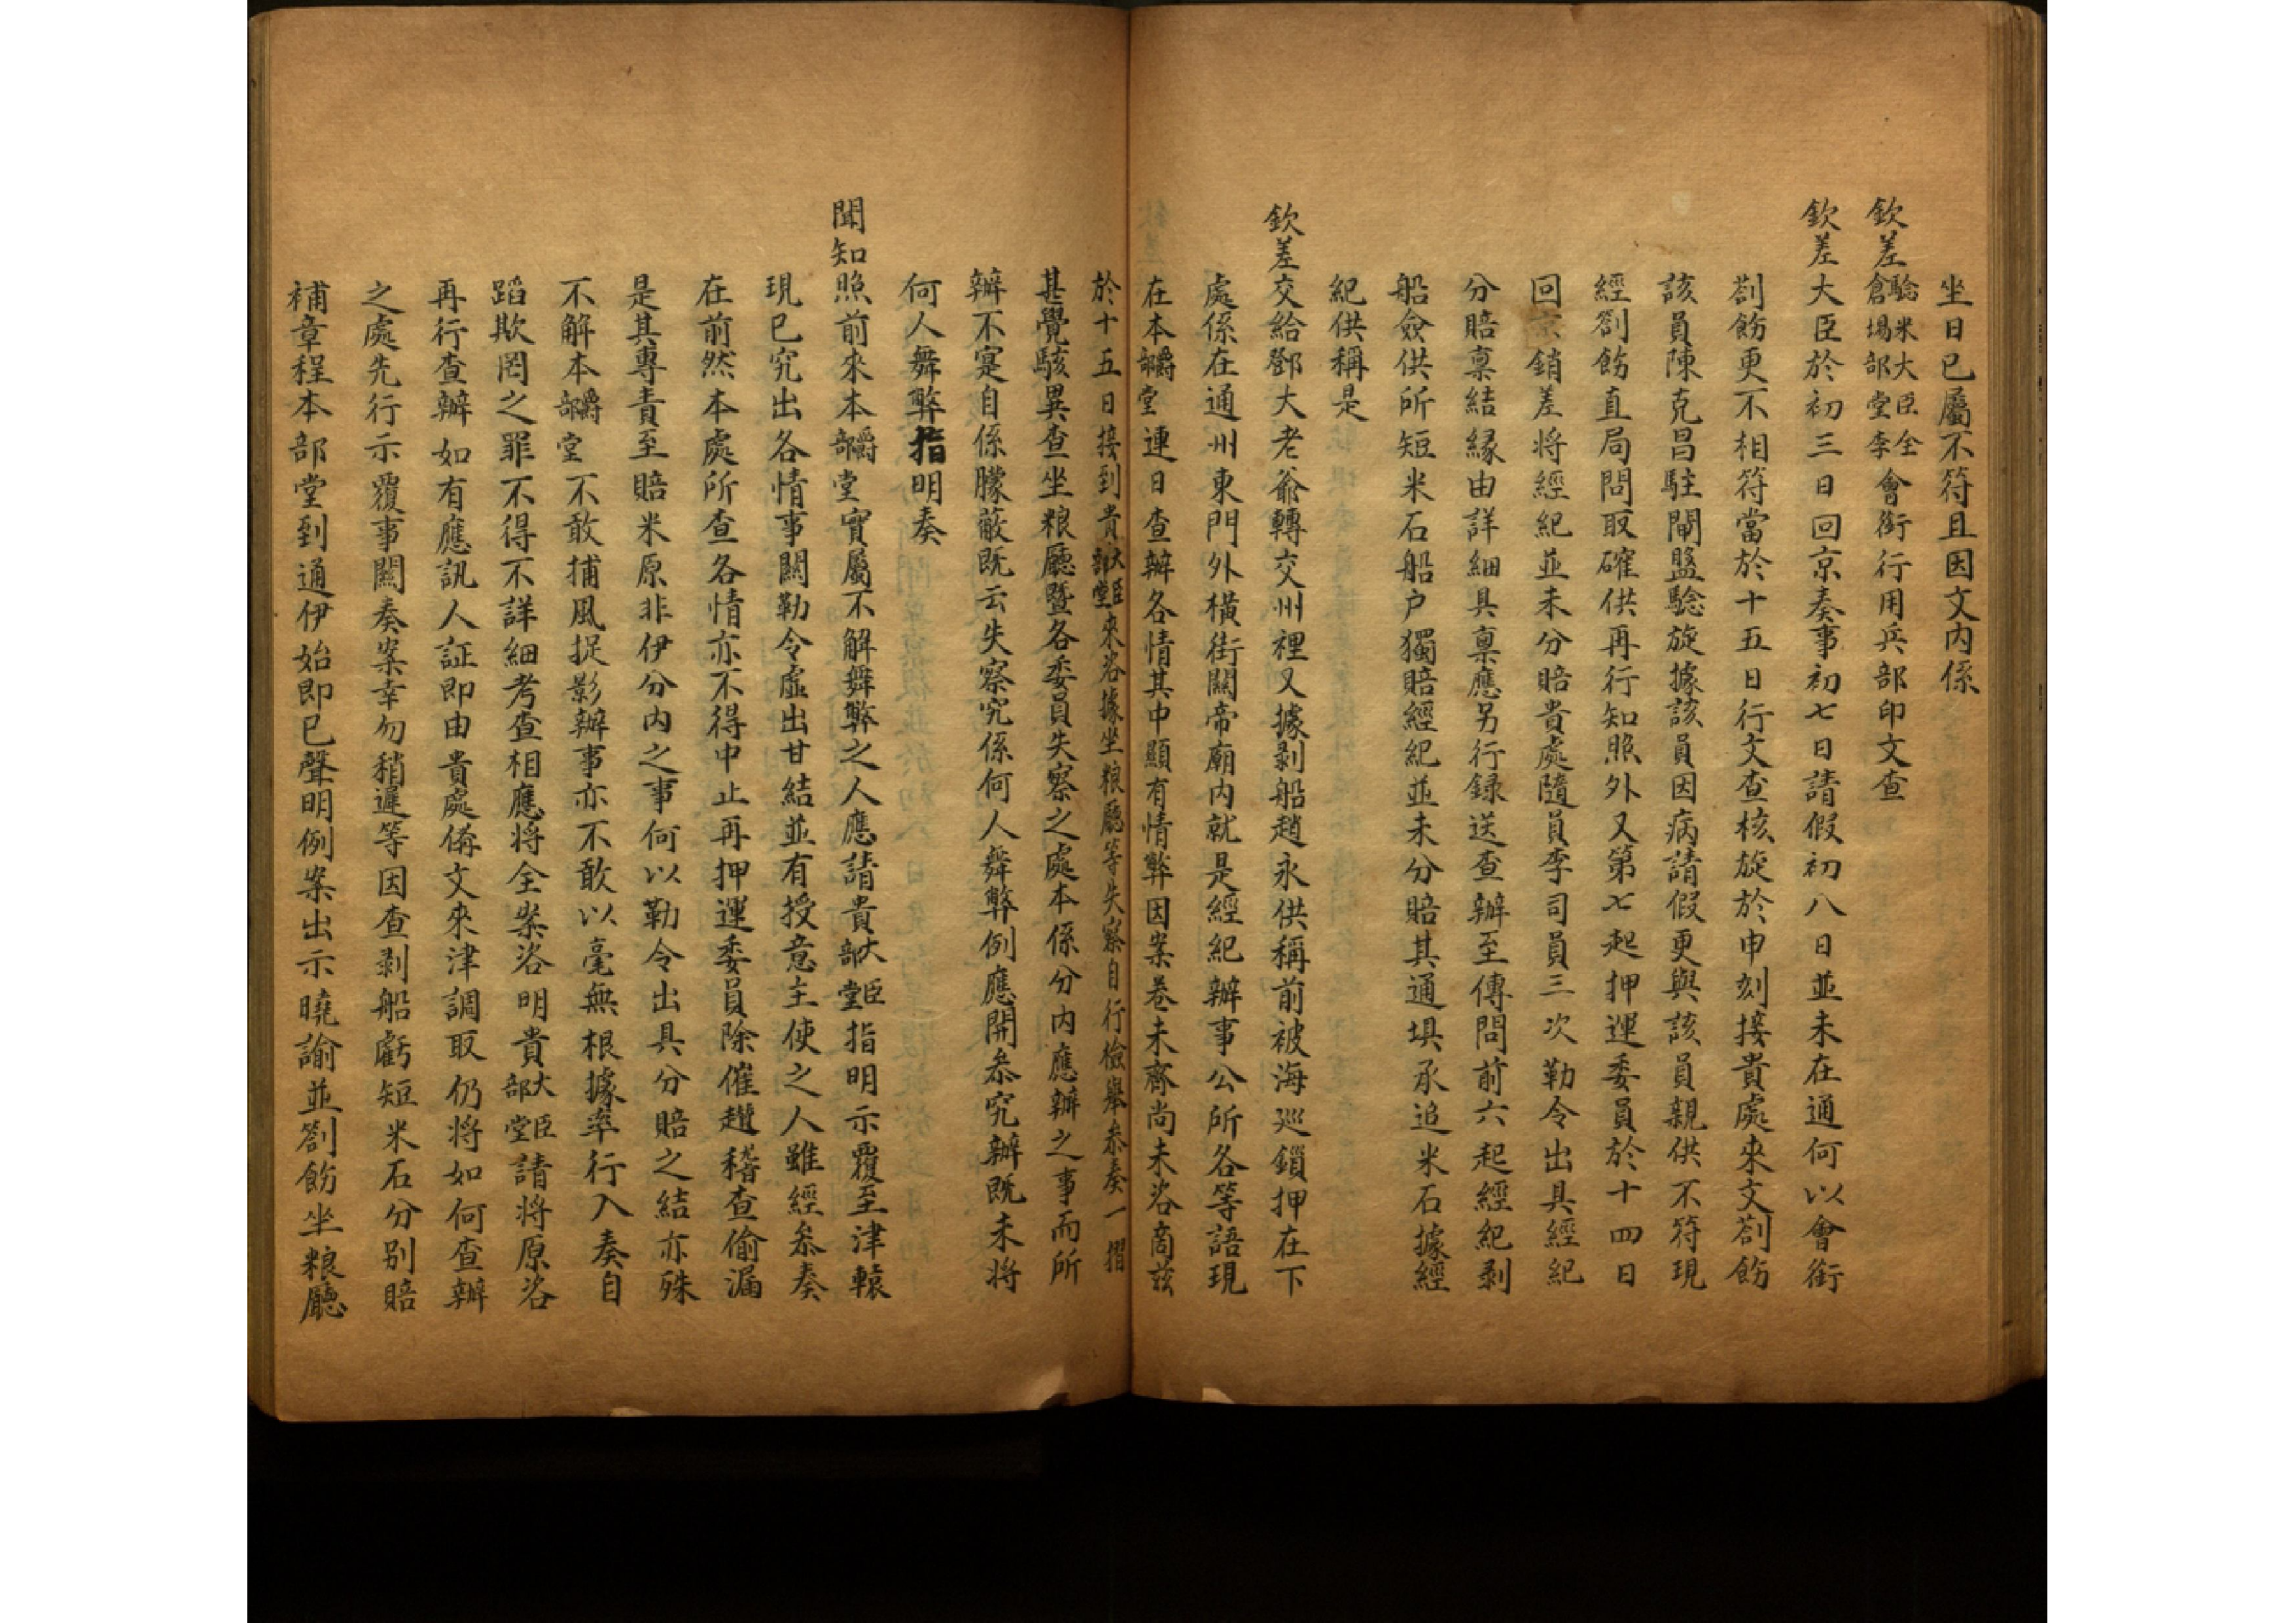 坐日已屬不符且因文內係
欽差驗米大臣全倉場部堂李會銜行用兵部印文查
欽差大臣於初三日回京奏事初七日請假初八日並未在通何以會銜
劄飭更不相符當於十五日行文查核旋於申刻接貴處來文劄飭
該員陳克昌駐閘盤驗旋據該員因病請假更與該員親供不符現
經劄飭直局問取確供再行知照外又第七起押運委員於十四日
回京銷差将經紀並未分賠貴處隨員李司員三次勒令出具經紀
分賠稟結緣由詳細具稟應另行録送查辦至傳問前六起經紀剥
船僉供所短米石船户獨賠經紀並未分賠其通埧承追米石據經
紀供稱是
欽差交給鄧大老爺轉交州裡又據剥船趙永供稱前被海巡鎖押在下
處係在通州東門外橫街關帝廟内就是經紀辦事公所各等語現
在本爵部堂連日查辦各情其中顯有情弊因案卷未齊尚未咨商茲
於十五日接到貴大臣部堂來咨據坐粮廳等失察自行檢舉叅奏一摺
甚覺駭異查坐粮廳暨各委員失察之處本係分内應辦之事而所
辦不寔自係朦蔽既云失察究係何人舞弊例應開叅究辦既未将
何人舞弊指明奏
聞知照前來本爵部堂實屬不解舞弊之人應請貴大臣部堂指明示覆至津轅
現已究出各情事關勒令虛出甘結並有授意主使之人雖經叅奏
在前然本處所查各情亦不得中止再押運委員除催趲稽查偷漏
是其專責至賠米原非伊分内之事何以勒令出具分賠之結亦殊
不解本爵部堂不敢捕風捉影辦事亦不敢以毫無根據率行入奏自
蹈欺罔之罪不得不詳細考查相應将全案咨明貴大臣部堂請将原咨
再行查辦如有應訊人証即由貴處備文來津調取仍将如何查辦
之處先行示覆事關奏案幸勿稍遲等因查剥船虧短米石分别賠
補章程本部堂到通伊始即已聲明例案出示曉諭並劄飭坐粮廳